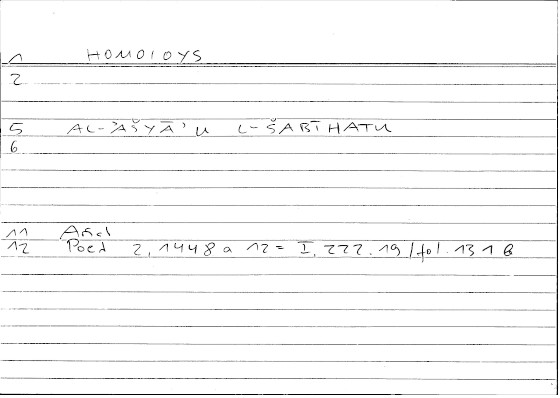 1 HOMOIOYS
2
5 AL-'AŠYĀ'U L-ŠABĪHATU
6
11 Arist
12 Poet 2, 1448 a 12 = I, 222.19 / fol. 131 b